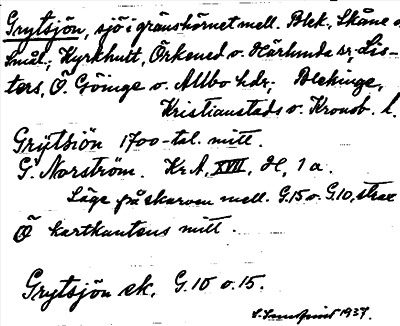 Grytsjön, sjö i gränshörnet mell. Blek., Skåne o.
Smål.; Kyrkhult, Örkened o. Härlunda sr; Lis-
ters, Ö Göinge o. Allbo hdr; Blekinge,
Kristianstads o. Kronob. l.
Grÿtsiön 1700-tal. mitt.
G. Norström. KrA, XVIII, H, 1 a.
Läge fr åskarom mell. G.15 o. G.10, strax
Ö kartkantens mitt.
Grytsjön ek. G.10 o. 15.
1937.